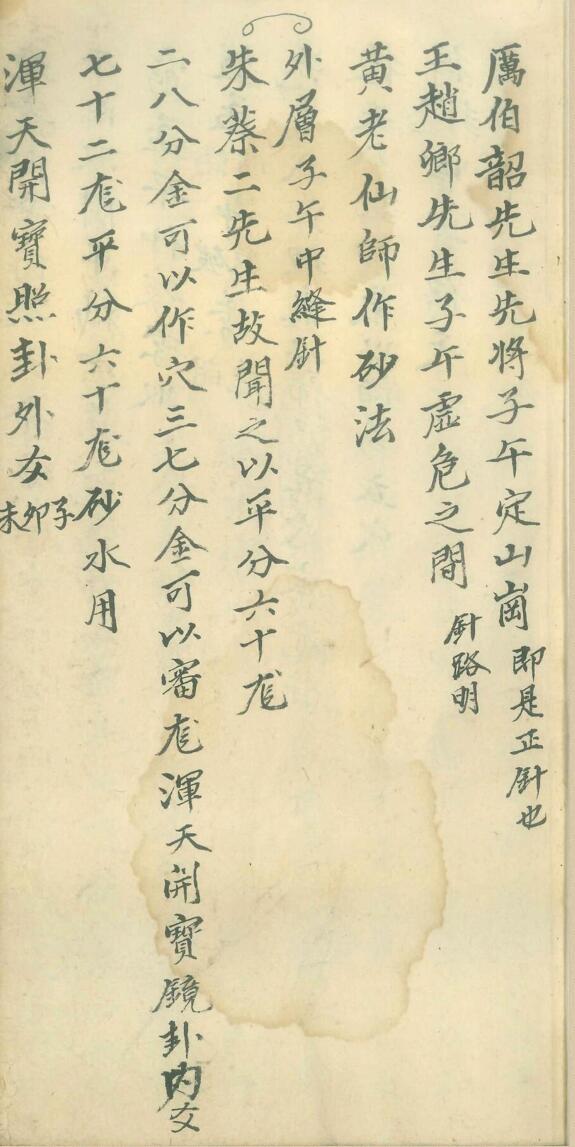 厲伯韶先生先將子午定山崗即是正針也
王趙鄉先生子午虛危之間針路明
黃老仙師作砂法
外層子午中縫針
朱蔡二先生故聞之以平分六十尨
二八分金可以作穴三七分金可以審尨渾天開寶鏡卦內爻
七十二尨平分六十尨砂水用
渾天開寶照卦外爻子卯未